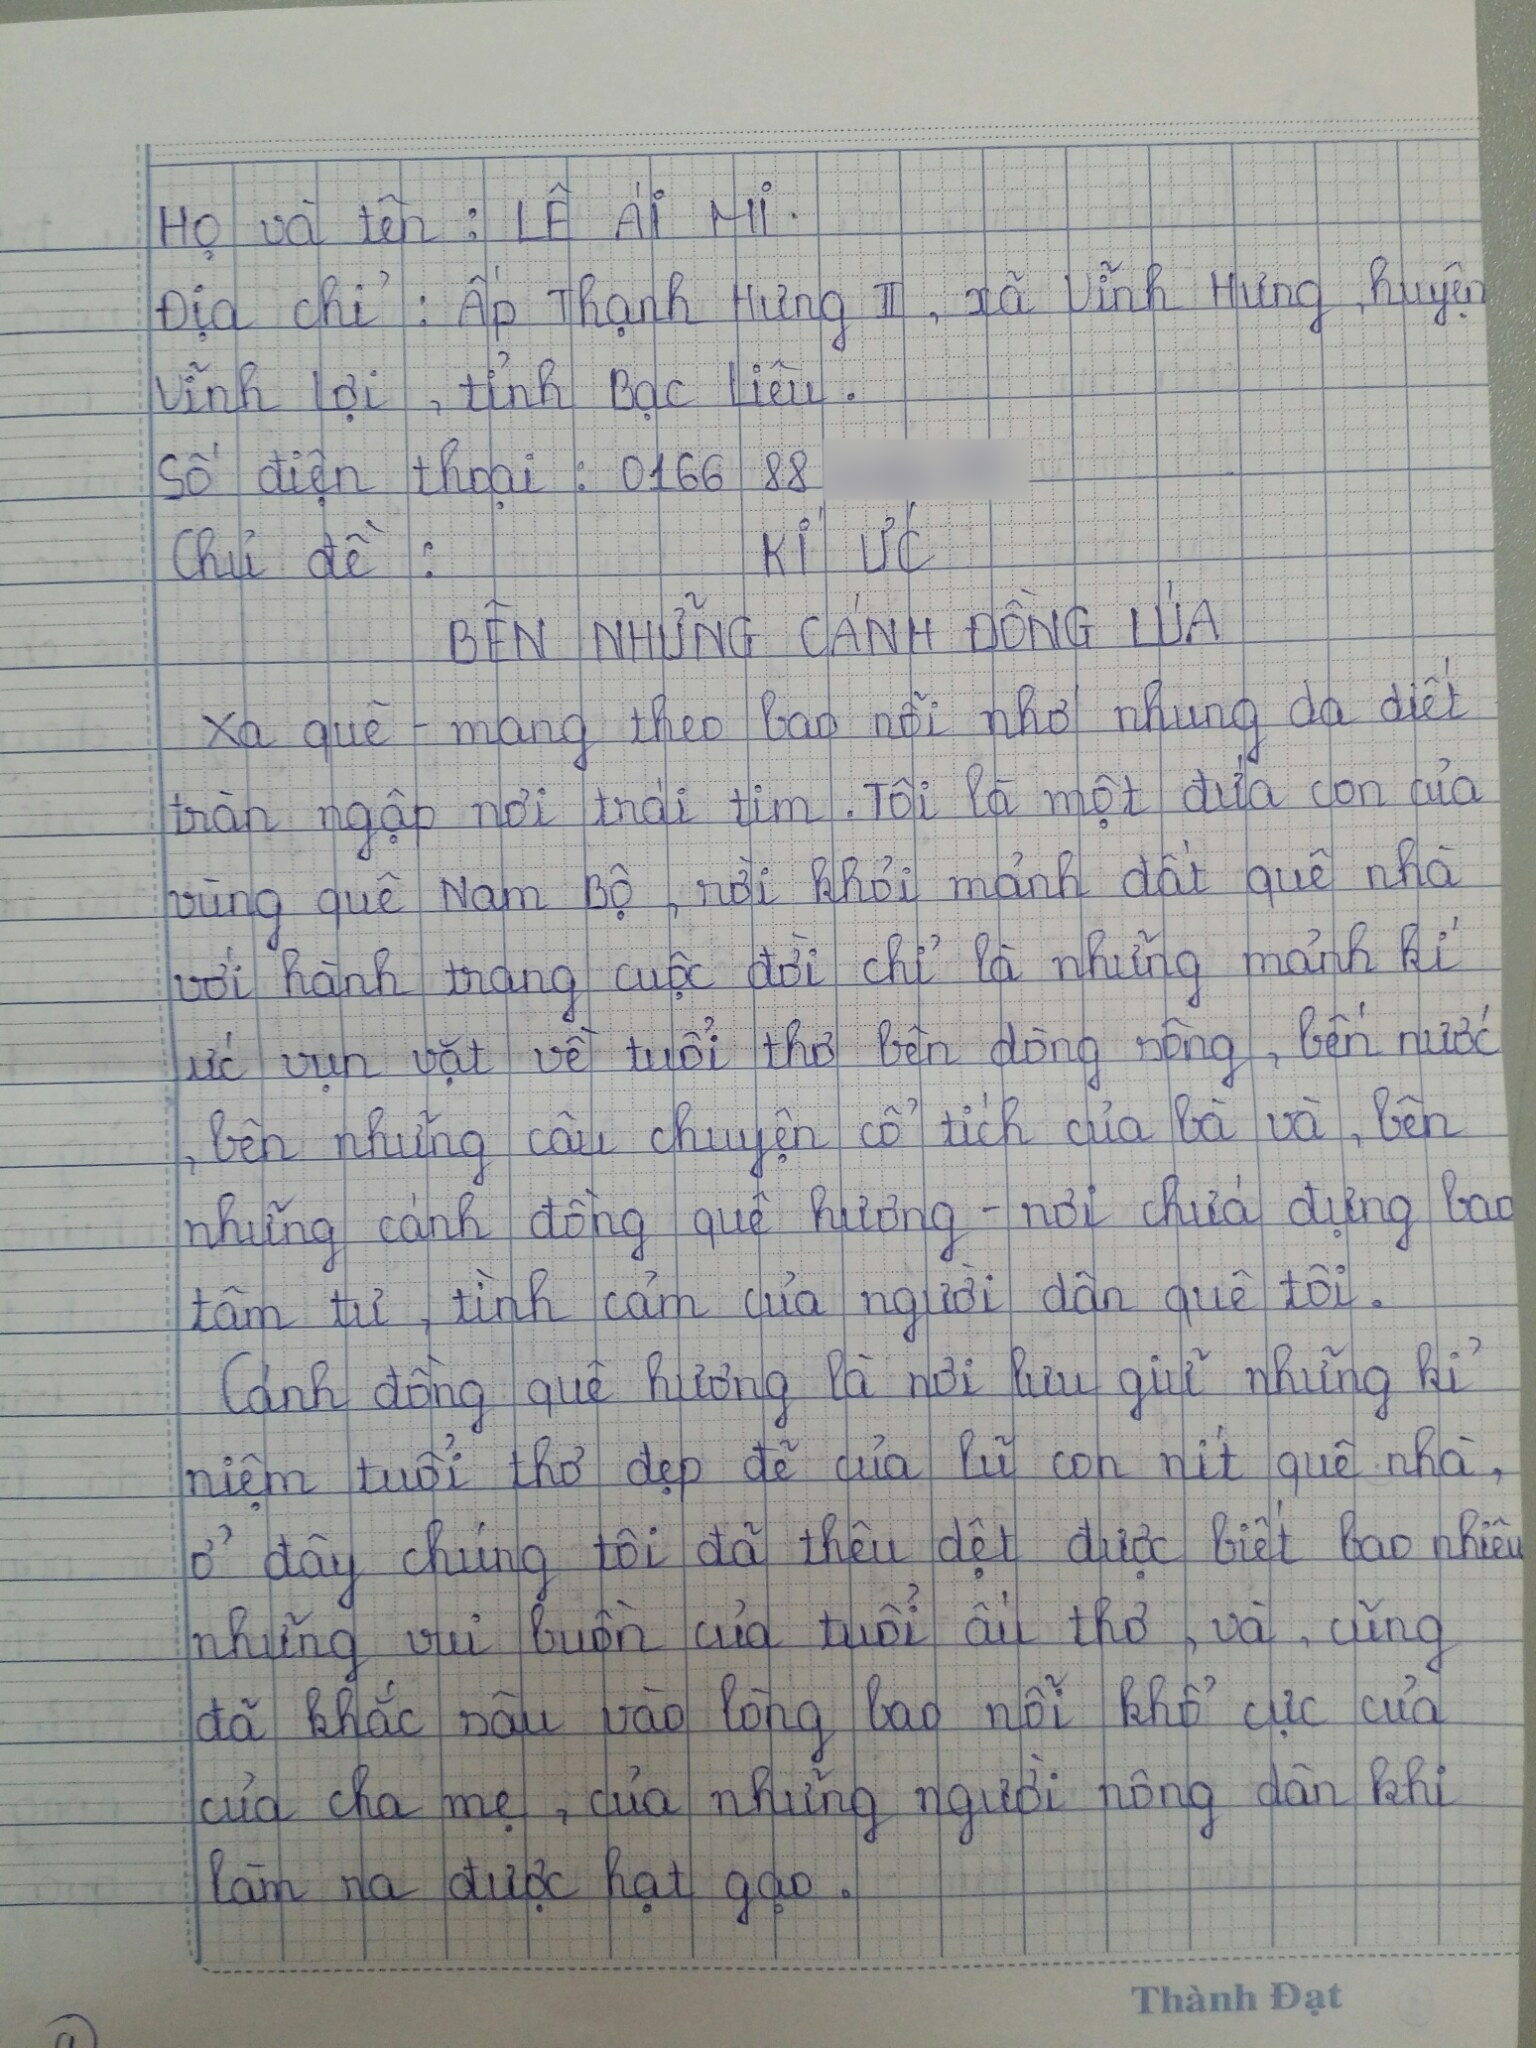 Họ và tên : LÊ ÁI MI.
Địa chỉ : Ấp Thạnh Hưng II, xã Vĩnh Hưng, huyện
Vĩnh Lợi, tỉnh Bạc Liêu.
Số điện thoại : 0166 88
Chủ đề : KÍ ỨC
BÊN NHỮNG CÁNH ĐỒNG LÚA
Xa quê - mang theo bao nỗi nhớ nhung da diết
tràn ngập nơi trái tim. Tôi là một đứa con của
vùng quê Nam Bộ, rời khỏi mảnh đất quê nhà
với hành trang cuộc đời chỉ là những mảnh kí
ức vụn vặt về tuổi thơ bên dòng sông, bến nước
, bên những câu chuyện cổ tích của bà và, bên
những cánh đồng quê hương - nơi chứa đựng bao
tâm tư, tình cảm của người dân quê tôi.
Cánh đồng quê hương là nơi lưu giữ những kỉ
niệm tuổi thơ đẹp đẽ của lũ con nít quê nhà,
ở đây chúng tôi đã thêu dệt được biết bao nhiêu
những vui buồn của tuổi ấu thơ, và, cũng
đã khắc sâu vào lòng bao nỗi khổ cực của
của cha mẹ, của những người nông dân khi
làm ra được hạt gạo.
Thành Đạt